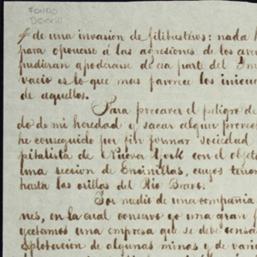 FONDO
DCXXIII
de una invasion de filibusteros: nada h
para oponerse á las agresiones de los aven
pudieran apoderarse de esa parte del Im
vacio es lo que mas favorece los inicuos
de aquellos.
Para precaver el peligro de
do de mi heredad y sacar algun provec
he conseguido por fin formar sociedad
pitalista de Nueva York con el objeto
una seccion de Encinillas, cuyos teno
hasta las orillas del Rio Bravo.
Por medio de una compañia
nes, en la cual conservo yo una gran p
yectamos una empresa que se debe consa
esplotacion de algunas minas y de vari